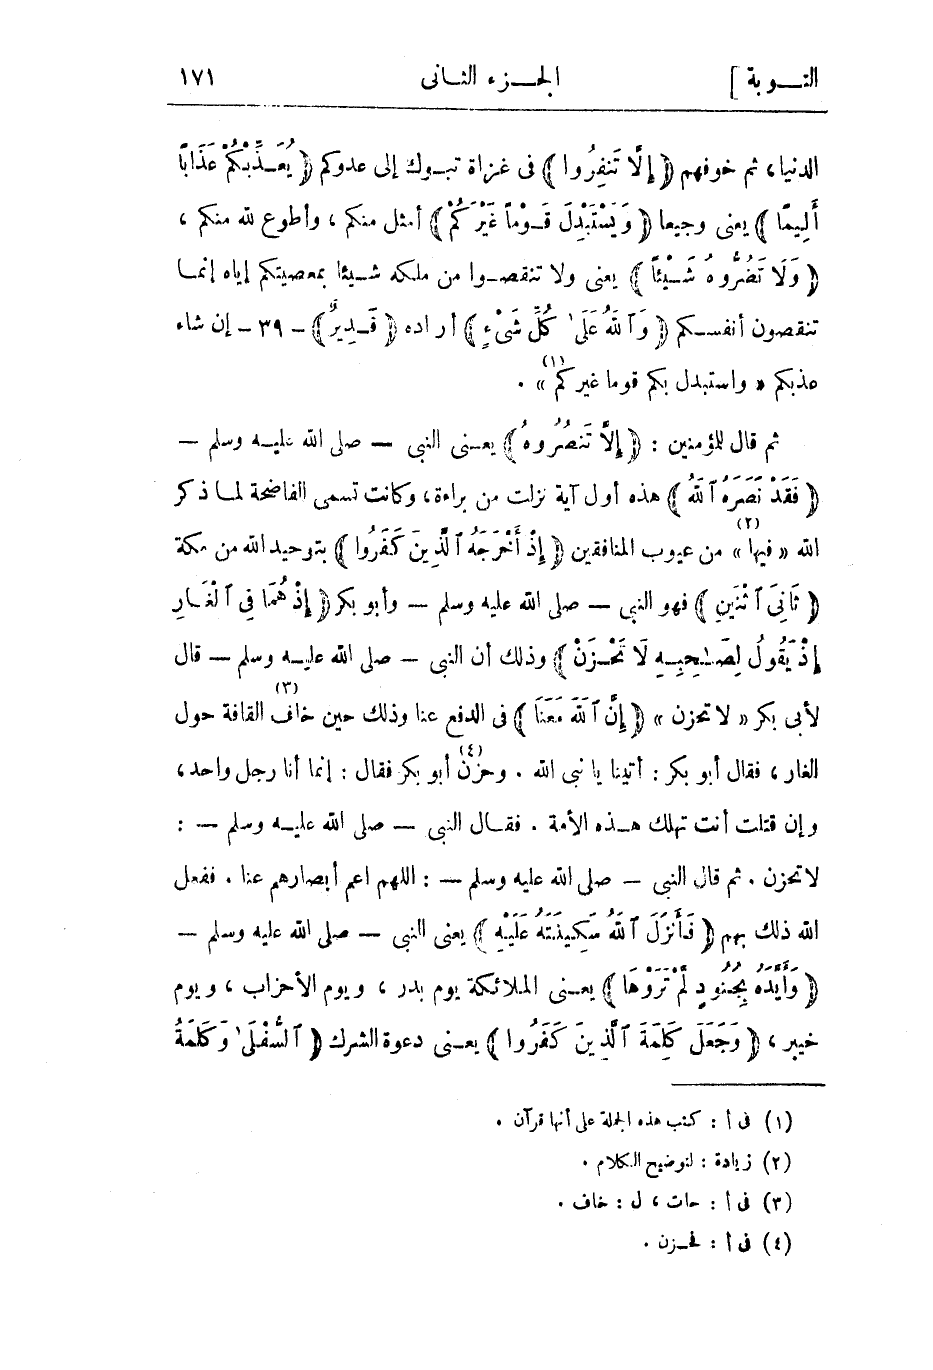 التـــوبة ]
الجـــزء الثانى
١٧١
الدنيا، ثم خوفهم ﴿ إِلَّا تَنفِرُوا ﴾ فى غزاة تبوك إلى عدوكم ﴿ يُعَذِّبْكُمْ عَذَابًا
أَلِيمًا ﴾ يعنى وجيعا ﴿ وَيَسْتَبْدِلَ قَوْماً غَيْرَكُمْ ﴾ أمثل منكم ، وأطوع لله منكم ،
﴿ وَلَا تَضُرُّوهُ شَيْئًا ﴾ يعنى ولا تنقصوا من ملكه شيئا بمعصيتكم إياه إنما
تنقصون أنفسكم ﴿ وَٱللَّهُ عَلَىٰ كُلِّ شَىْءٍ ﴾ أراده ﴿ قَدِيرٌ ﴾ – ٣٩ – إن شاء
عذبكم « واستبدل بكم قوما غيركم (١) » .
ثم قال للمؤمنين : ﴿ إِلَّا تَنصُرُوهُ ﴾ يعنى النبى — صلى الله عليه وسلم —
﴿ فَقَدْ نَصَرَهُ ٱللَّهُ ﴾ هذه أول آية نزلت من براءة، وكانت تسمى الفاضحة لما ذكر
الله « فيها (٢) » من عيوب المنافقين ﴿ إِذْ أَخْرَجَهُ ٱلَّذِينَ كَفَرُوا ﴾ بتوحيد الله من مكة
﴿ ثَانِىَ ٱثْنَيْنِ ﴾ فهو النبى — صلى الله عليه وسلم — وأبو بكر ﴿ إِذْ هُمَا فِى ٱلْغَارِ
إِذْ يَقُولُ لِصَـٰحِبِهِ لَا تَحْزَنْ ﴾ وذلك أن النبى — صلى الله عليه وسلم — قال
لأبى بكر « لا تحزن » ﴿ إِنَّ ٱللَّهَ مَعَنَا ﴾ فى الدفع عنا وذلك حين خاف (٣) القافة حول
الغار ، فقال أبو بكر : أتينا يا نبى الله . وحزن (٤) أبو بكر فقال : إنما أنا رجل واحد،
وإن قتلت أنت تهلك هذه الأمة . فقال النبى — صلى الله عليه وسلم — :
لا تحزن . ثم قال النبى — صلى الله عليه وسلم — : اللهم اعم أبصارهم عنا . ففعل
الله ذلك بهم ﴿ فَأَنزَلَ ٱللَّهُ سَكِينَتَهُ عَلَيْهِ ﴾ يعنى النبى — صلى الله عليه وسلم —
﴿ وَأَيَّدَهُ بِجُنُودٍ لَّمْ تَرَوْهَا ﴾ يعنى الملائكة يوم بدر ، ويوم الأحزاب ، ويوم
خيبر ، ﴿ وَجَعَلَ كَلِمَةَ ٱلَّذِينَ كَفَرُوا ﴾ يعنى دعوة الشرك ﴿ ٱلسُّفْلَىٰ وَكَلِمَةُ
(١) فى أ : كتب هذه الجملة على أنها قرآن .
(٢) زيادة : لتوضيح الكلام .
(٣) فى أ : حات ، ل : خاف .
(٤) فى أ : فحزن .